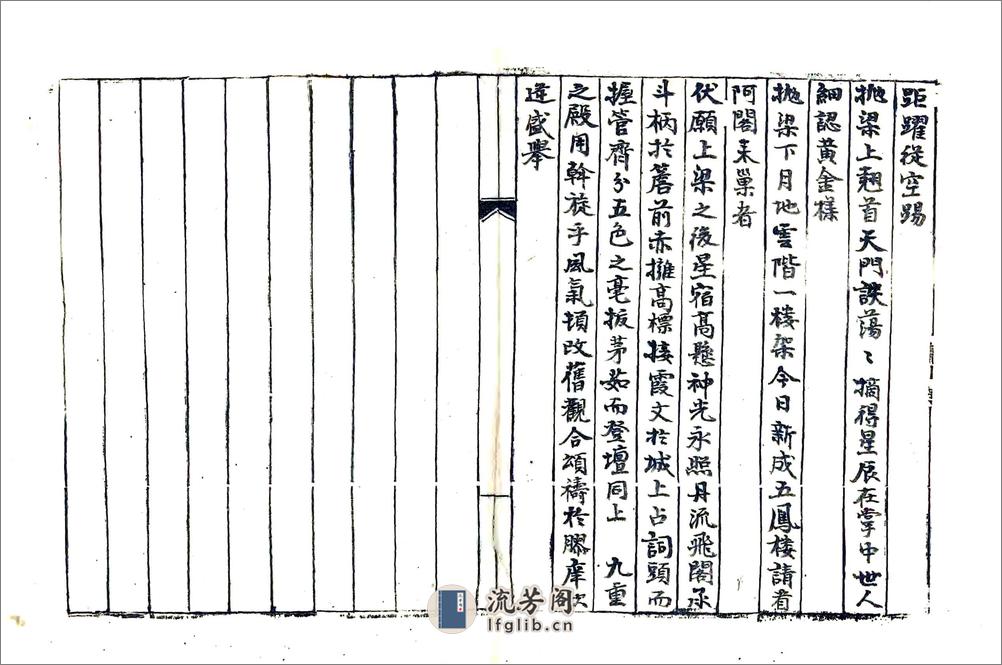 距躍從空踢
抛梁上翹首天門詄蕩〻摘得星辰在掌中世人
細認黃金樣
抛梁下月地雲階一楼架今日新成五鳳楼請看
阿閣来巢者
伏願上梁之後星宿高懸神光永照丹流飛閣承
斗柄於簷前赤擁高標接霞文於城上占詞頭而
握管齊分五色之毫拔茅茹而登壇同上　九重
之殿用斡旋乎風氣頓改舊觀合頌禱於膠庠
逆盛舉
流芳阁
lfglib.cn